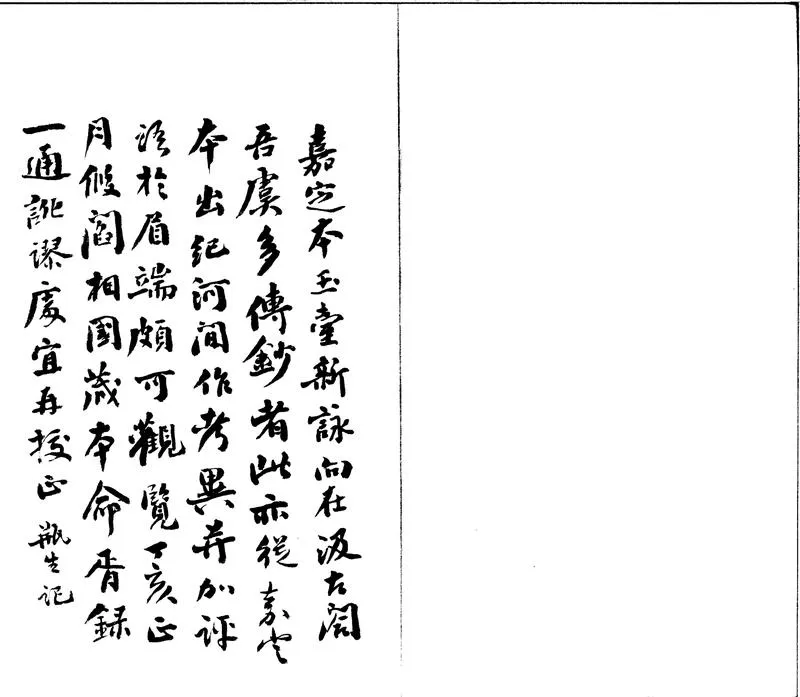 嘉定本玉臺新詠向在汲古閣
吾虞多傳鈔者此亦從嘉定
本出紀河間作考異并加評
語於眉端頗可觀覽丁亥正
月假閻相國藏本命胥録
一通訛謬處宜再挍正 瓶生記